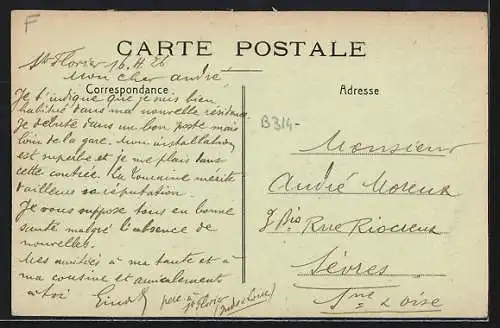 F
CARTE POSTALE
St Florier 16.4.26
Mon cher André
Correspondance
Je t'indique que je suis bien
habitué dans ma nouvelle résidence
Je débute dans un bon poste mais
loin de la gare. Mon installation
est superbe et je me plais dans
cette contrée. La Touraine mérite
d'ailleurs sa réputation.
Je vous suppose tous en bonne
santé malgré l'absence de
nouvelles.
Mes amitiés à ma tante et à
ma cousine et amicalement
à toi
à St Florier
(Indre et Loire)
Adresse
B314-
Monsieur
André Moreux
bis Rue Riocreux
Sèvres
Sne & Oise